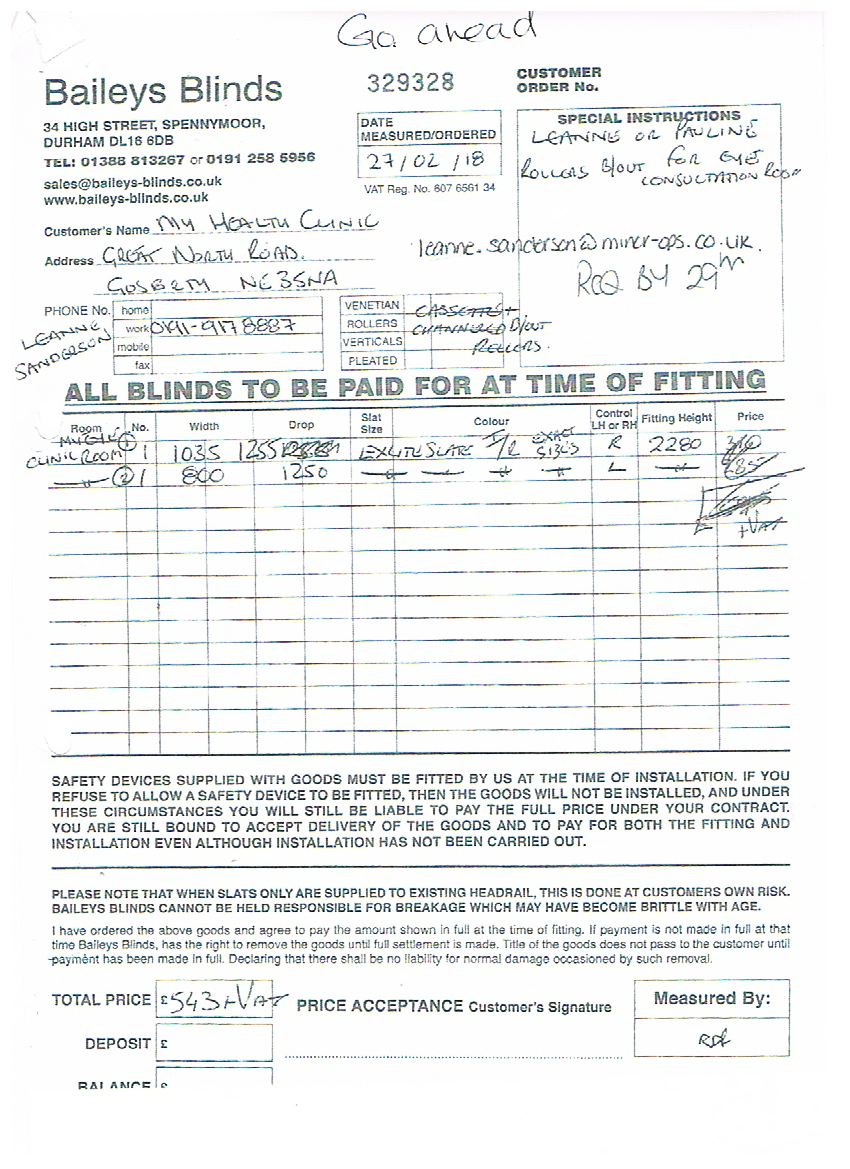 Go ahead
Baileys Blinds
329328
CUSTOMER
ORDER No.
34 HIGH STREET, SPENNYMOOR,
DURHAM DL16 6DB
TEL: 01388 813267 or 0191 258 5956
sales@baileys-blinds.co.uk
www.baileys-blinds.co.uk
DATE
MEASURED/ORDERED
27/02/18
VAT Reg. No. 607 6561 34
SPECIAL INSTRUCTIONS
LEANNE OR PAULINE
ROLLERS B/OUT FOR EYE
CONSULTATION ROOM
Customer's Name MY HEALTH CLINIC
Address GREAT NORTH ROAD.
GOSFORTH NE3 5NA
leanne.sanderson@minor-ops.co.uk.
REQ BY 29th
PHONE No.
LEANNE
SANDERSON
home
work 0191-917 8887
mobile
fax
VENETIAN CASSETTE +
ROLLERS CHANNELLED B/OUT
VERTICALS ROLLERS.
PLEATED
ALL BLINDS TO BE PAID FOR AT TIME OF FITTING
Room No. Width Drop Slat Size Colour Control LH or RH Fitting Height Price
CLINIC ROOM 1 1 1035 1255 SLATE I/R EXACT SIZES R 2280
" 2 1 800 1250 " " " L "
£ +VAT
SAFETY DEVICES SUPPLIED WITH GOODS MUST BE FITTED BY US AT THE TIME OF INSTALLATION. IF YOU
REFUSE TO ALLOW A SAFETY DEVICE TO BE FITTED, THEN THE GOODS WILL NOT BE INSTALLED, AND UNDER
THESE CIRCUMSTANCES YOU WILL STILL BE LIABLE TO PAY THE FULL PRICE UNDER YOUR CONTRACT.
YOU ARE STILL BOUND TO ACCEPT DELIVERY OF THE GOODS AND TO PAY FOR BOTH THE FITTING AND
INSTALLATION EVEN ALTHOUGH INSTALLATION HAS NOT BEEN CARRIED OUT.
PLEASE NOTE THAT WHEN SLATS ONLY ARE SUPPLIED TO EXISTING HEADRAIL, THIS IS DONE AT CUSTOMERS OWN RISK.
BAILEYS BLINDS CANNOT BE HELD RESPONSIBLE FOR BREAKAGE WHICH MAY HAVE BECOME BRITTLE WITH AGE.
I have ordered the above goods and agree to pay the amount shown in full at the time of fitting. If payment is not made in full at that
time Baileys Blinds, has the right to remove the goods until full settlement is made. Title of the goods does not pass to the customer until
payment has been made in full. Declaring that there shall be no liability for normal damage occasioned by such removal.
TOTAL PRICE £543+VAT
PRICE ACCEPTANCE Customer's Signature
Measured By:
DEPOSIT £
BALANCE £